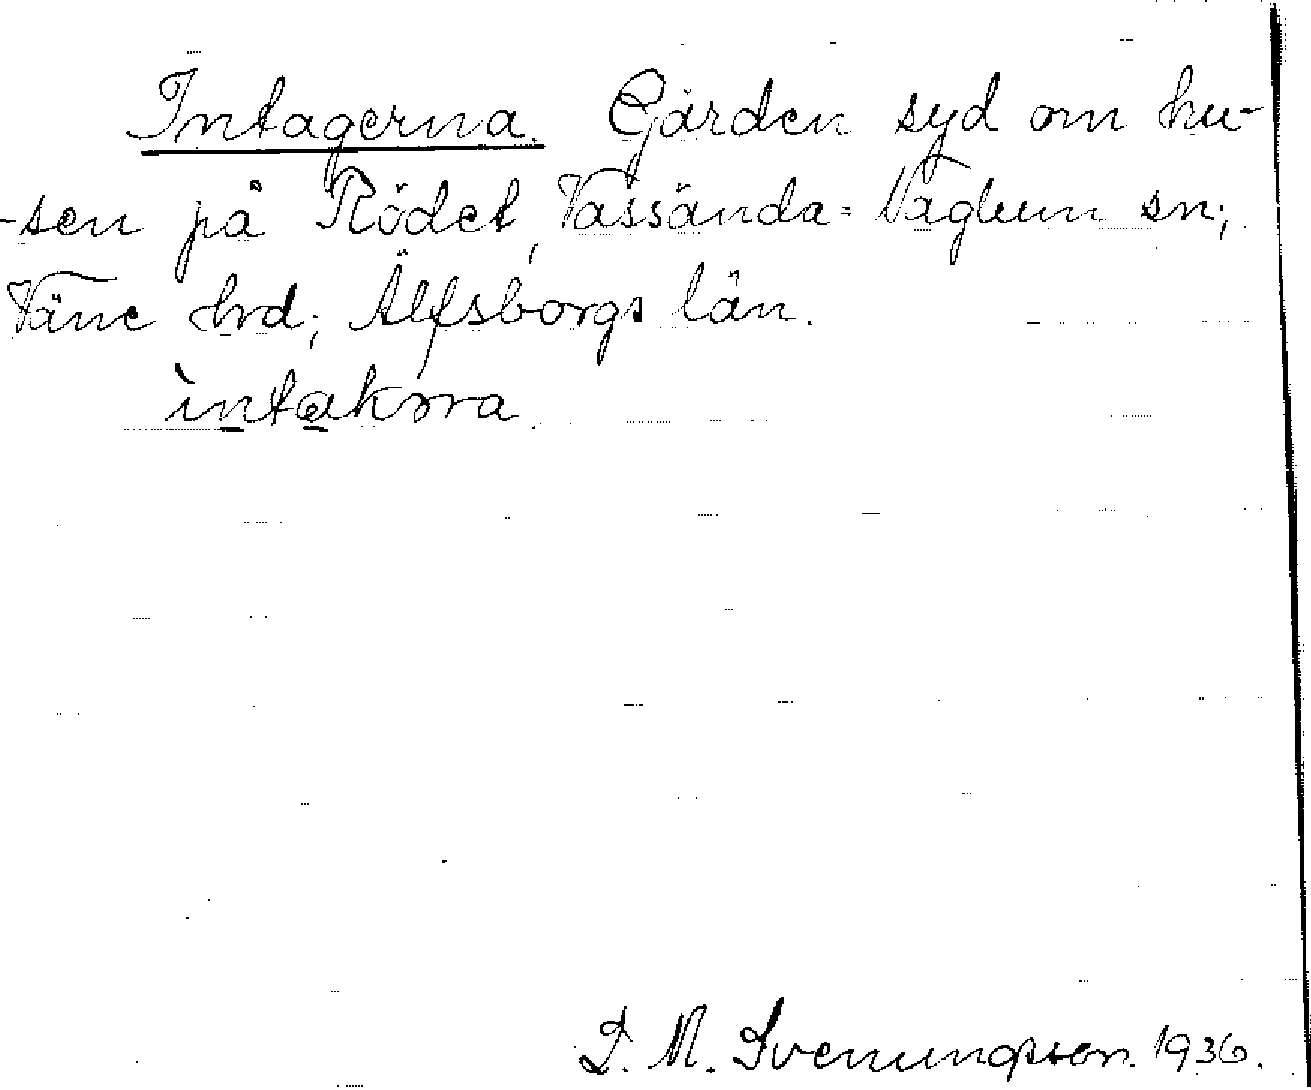 Intagerna. Gärden syd om hu-
-sen på Rödet, Vassända-Naglum sn;
Väne hrd; Älfsborgs län.
ìntakɔra
S. M. Svenungsson. 1936.